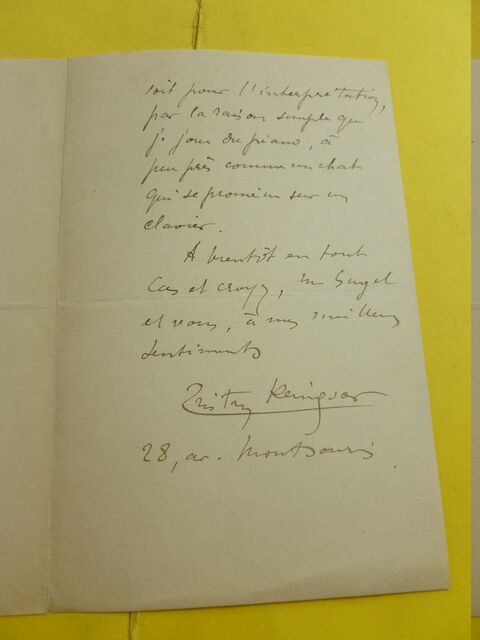 soit pour l'interprétation,
par la raison simple que
je joue du piano, à
peu près comme un chat
qui se promène sur un
clavier.
A bientôt en tout
cas et croyez,
et vous, à mes meilleurs
sentiments
Tristan Klingsor
28, av. Montsouris.